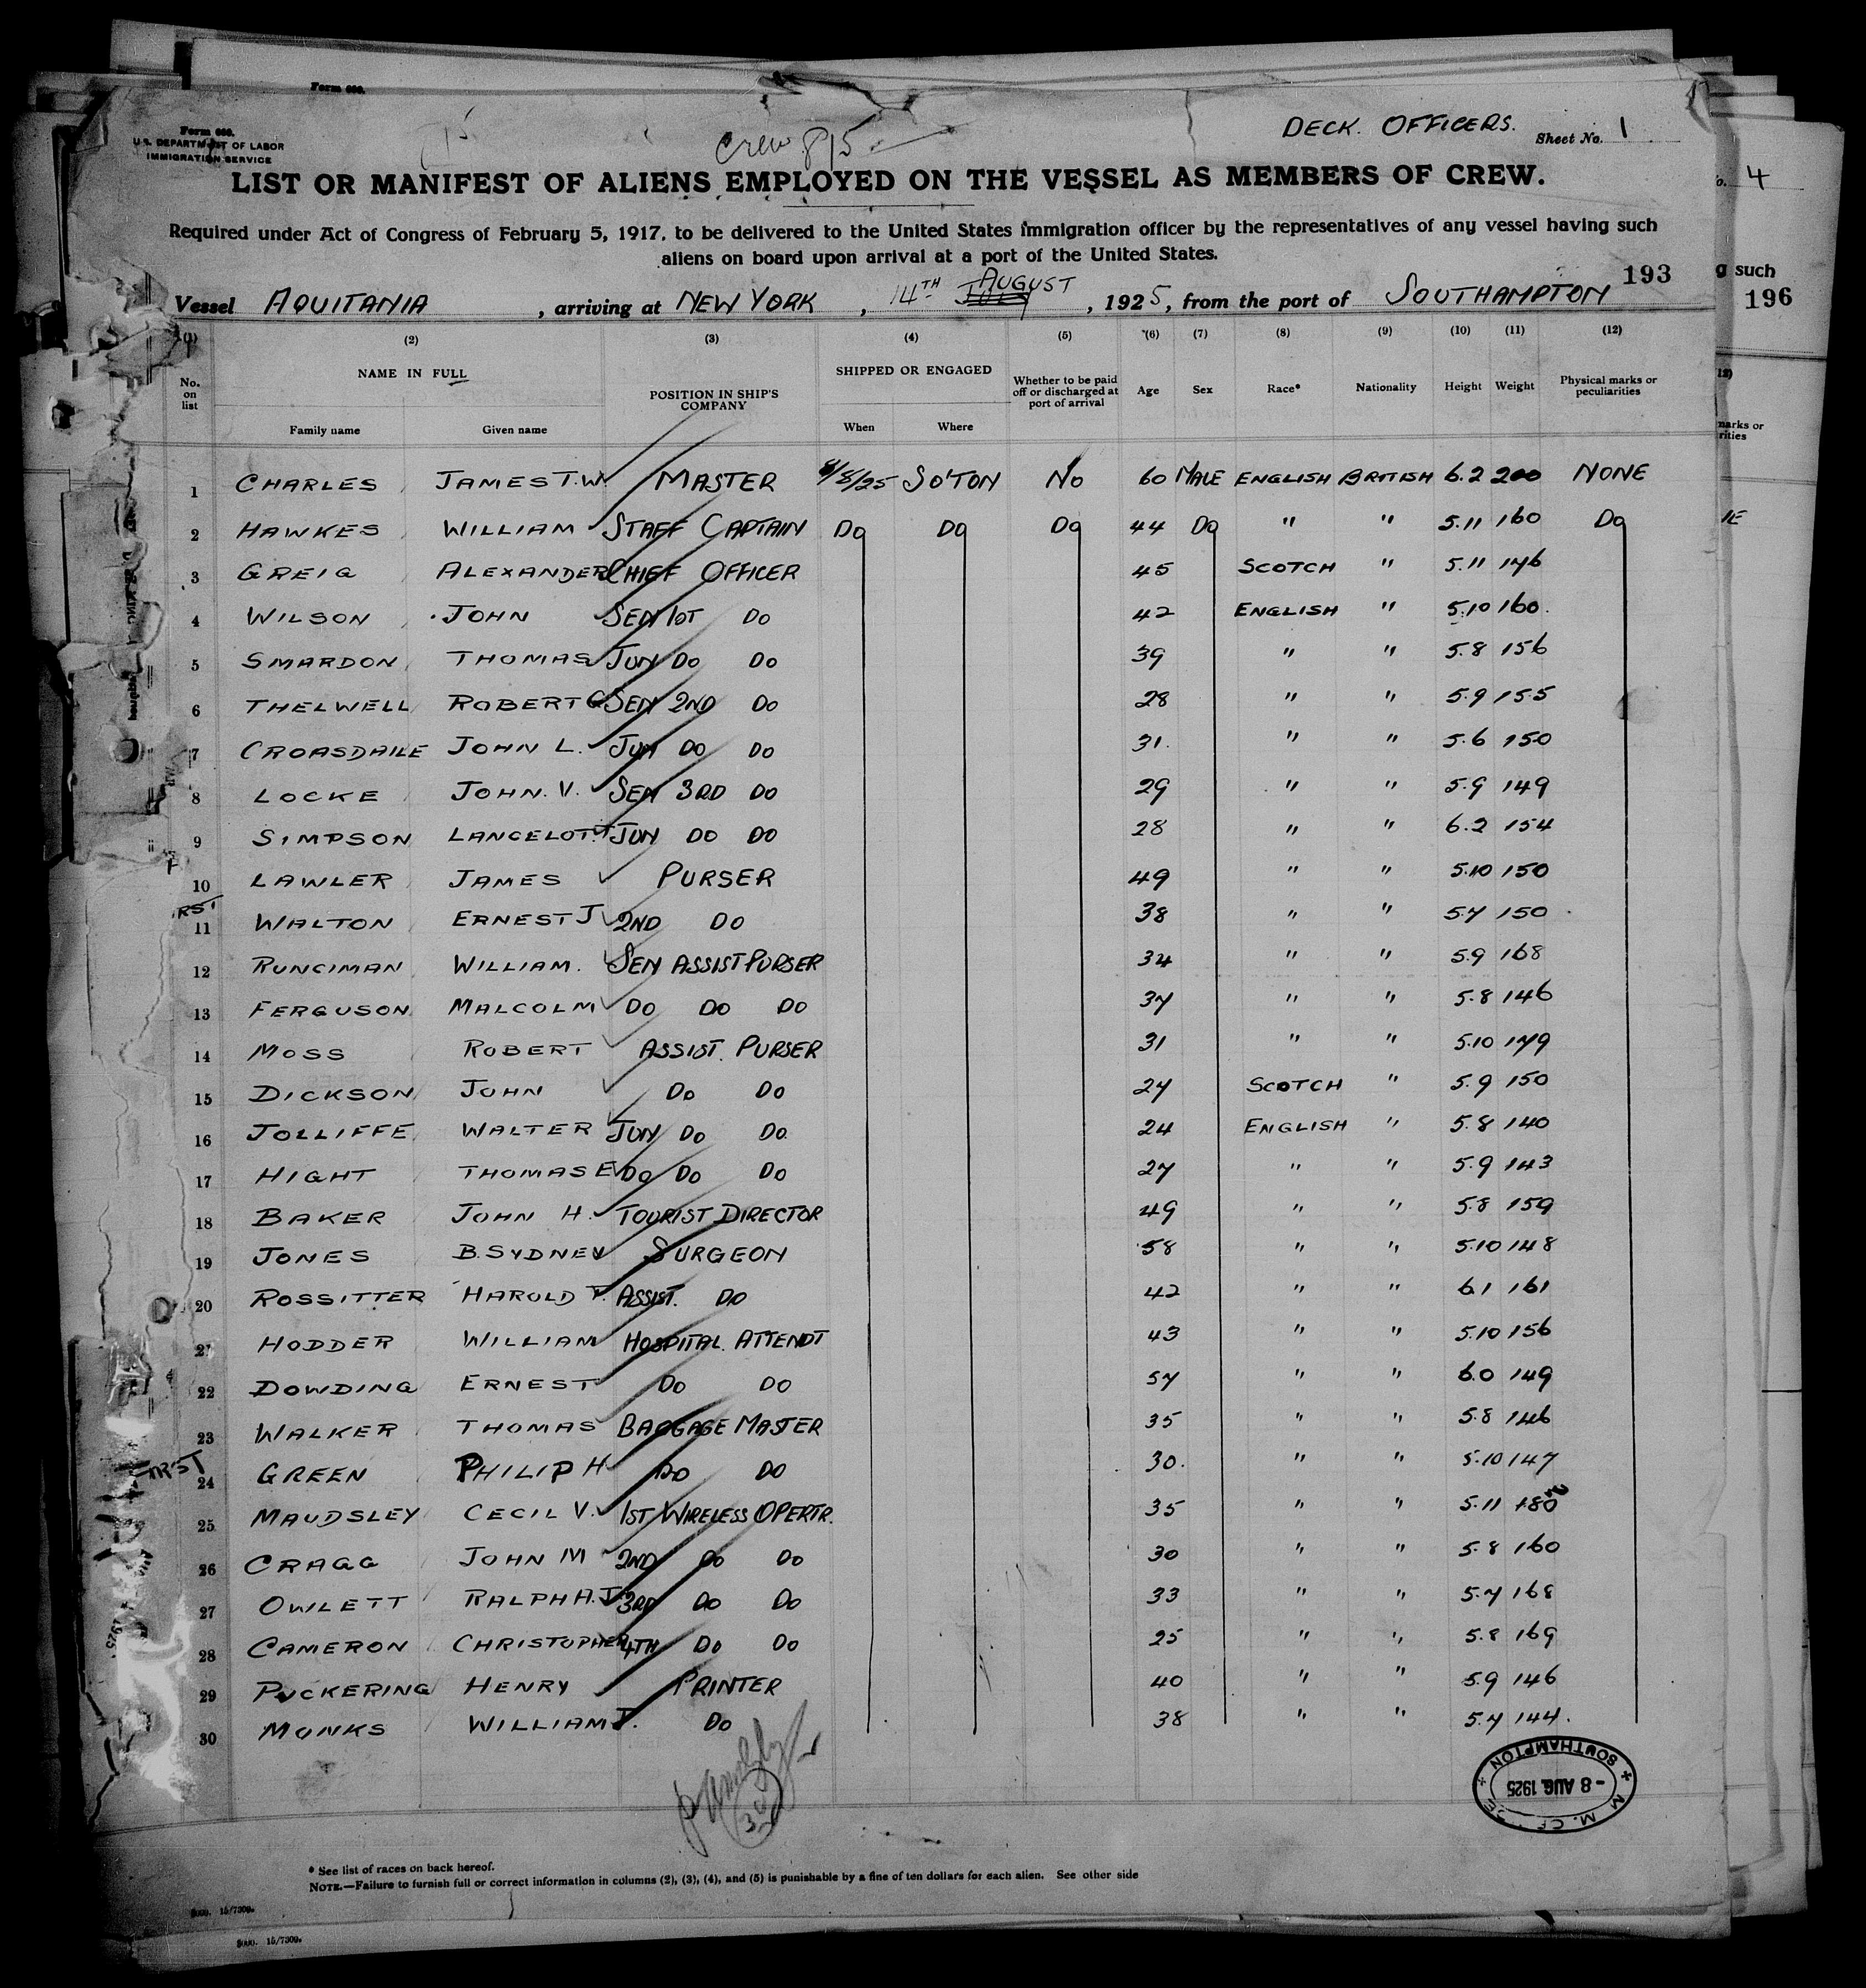 Form 660.
Form 660.
U.S. DEPARTMENT OF LABOR
IMMIGRATION SERVICE
Crew 815
DECK. OFFICERS. Sheet No. 1
LIST OR MANIFEST OF ALIENS EMPLOYED ON THE VESSEL AS MEMBERS OF CREW.
4
Required under Act of Congress of February 5, 1917, to be delivered to the United States immigration officer by the representatives of any vessel having such
aliens on board upon arrival at a port of the United States.
193
g such
196
Vessel AQUITANIA, arriving at NEW YORK, 14TH JULY AUGUST, 1925, from the port of SOUTHAMPTON
(1) (2) (3) (4) (5) (6) (7) (8) (9) (10) (11) (12)
No. on list NAME IN FULL POSITION IN SHIP'S COMPANY SHIPPED OR ENGAGED Whether to be paid off or discharged at port of arrival Age Sex Race* Nationality Height Weight Physical marks or peculiarities
Family name Given name When Where
marks or
rities
1 CHARLES JAMES T.W. MASTER 8/8/25 SO'TON No 60 MALE ENGLISH BRITISH 6.2 200 NONE
2 HAWKES WILLIAM STAFF CAPTAIN Do Do Do 44 Do " " 5.11 160 Do
3 GREIG ALEXANDER CHIEF OFFICER 45 SCOTCH " 5.11 146
4 WILSON JOHN SEN 1ST DO 42 ENGLISH " 5.10 160
5 SMARDON THOMAS JUN DO DO 39 " " 5.8 156
6 THELWELL ROBERT G SEN 2ND DO 28 " " 5.9 155
7 CROASDAILE JOHN L. JUN DO DO 31. " " 5.6 150
8 LOCKE JOHN. V. SEN 3RD DO 29 " " 5.9 149
9 SIMPSON LANCELOT T. JUN DO DO 28 " " 6.2 154
10 LAWLER JAMES PURSER 49 " " 5.10 150
RST
11 WALTON ERNEST J 2ND DO 38 " " 5.7 150
12 RUNCIMAN WILLIAM. SEN ASSIST PURSER 34 " " 5.9 168
13 FERGUSON MALCOLM DO DO DO 37 " " 5.8 146
14 MOSS ROBERT ASSIST. PURSER 31 " " 5.10 179
15 DICKSON JOHN DO DO 27 SCOTCH " 5.9 150
16 JOLLIFFE WALTER JUN DO DO. 24 ENGLISH " 5.8 140
17 HIGHT THOMAS E DO DO DO 27 " " 5.9 143
18 BAKER JOHN H. TOURIST DIRECTOR 49 " " 5.8 159
19 JONES B. SYDNEY SURGEON 58 " " 5.10 148
20 ROSSITTER HAROLD P. ASSIST. DO 42 " " 6.1 161
21 HODDER WILLIAM HOSPITAL. ATTENDT 43 " " 5.10 156
22 DOWDING ERNEST DO DO 57 " " 6.0 149
23 WALKER THOMAS BAGGAGE MASTER 35 " " 5.8 146
24 GREEN PHILIP H DO DO 30. " " 5.10 147
25 MAUDSLEY CECIL V. 1ST WIRELESS OPERTR. 35 " " 5.11 180
26 CRAGG JOHN M 2ND DO DO 30 " " 5.8 160
27 OWLETT RALPH A. J. 3RD DO DO 33 " " 5.7 168
28 CAMERON CHRISTOPHER 4TH DO DO 25 " " 5.8 169
29 PUCKERING HENRY PRINTER 40 " " 5.9 146
30 MONKS WILLIAM DO 38 " " 5.7 144.
30
SOUTHAMPTON
- 8 AUG. 1925
* See list of races on back hereof.
NOTE.—Failure to furnish full or correct information in columns (2), (3), (4), and (5) is punishable by a fine of ten dollars for each alien. See other side
15/7309.
15/7309.